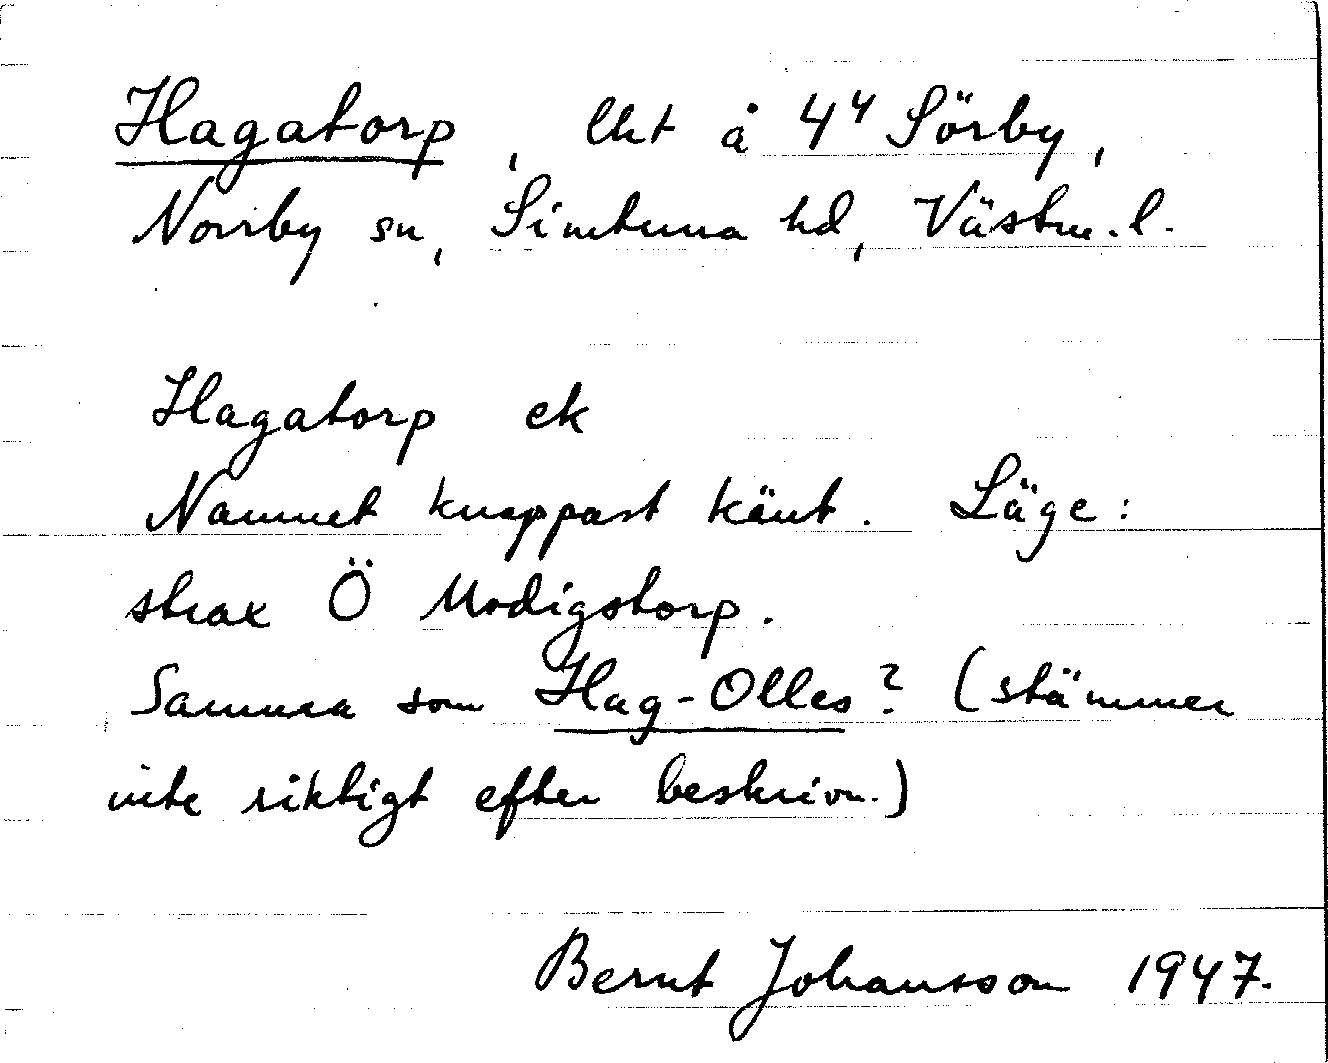 Hagatorp, lht å 4⁴ Sörby,
Norrby sn, Simtuna hd, Västm. l.
Hagatorp ek
Namnet knappast känt. Läge:
strax Ö Modigstorp.
Samma som Hag-Olles? (stämmer
inte riktigt efter beskrivn.)
Bernt Johansson 1947.